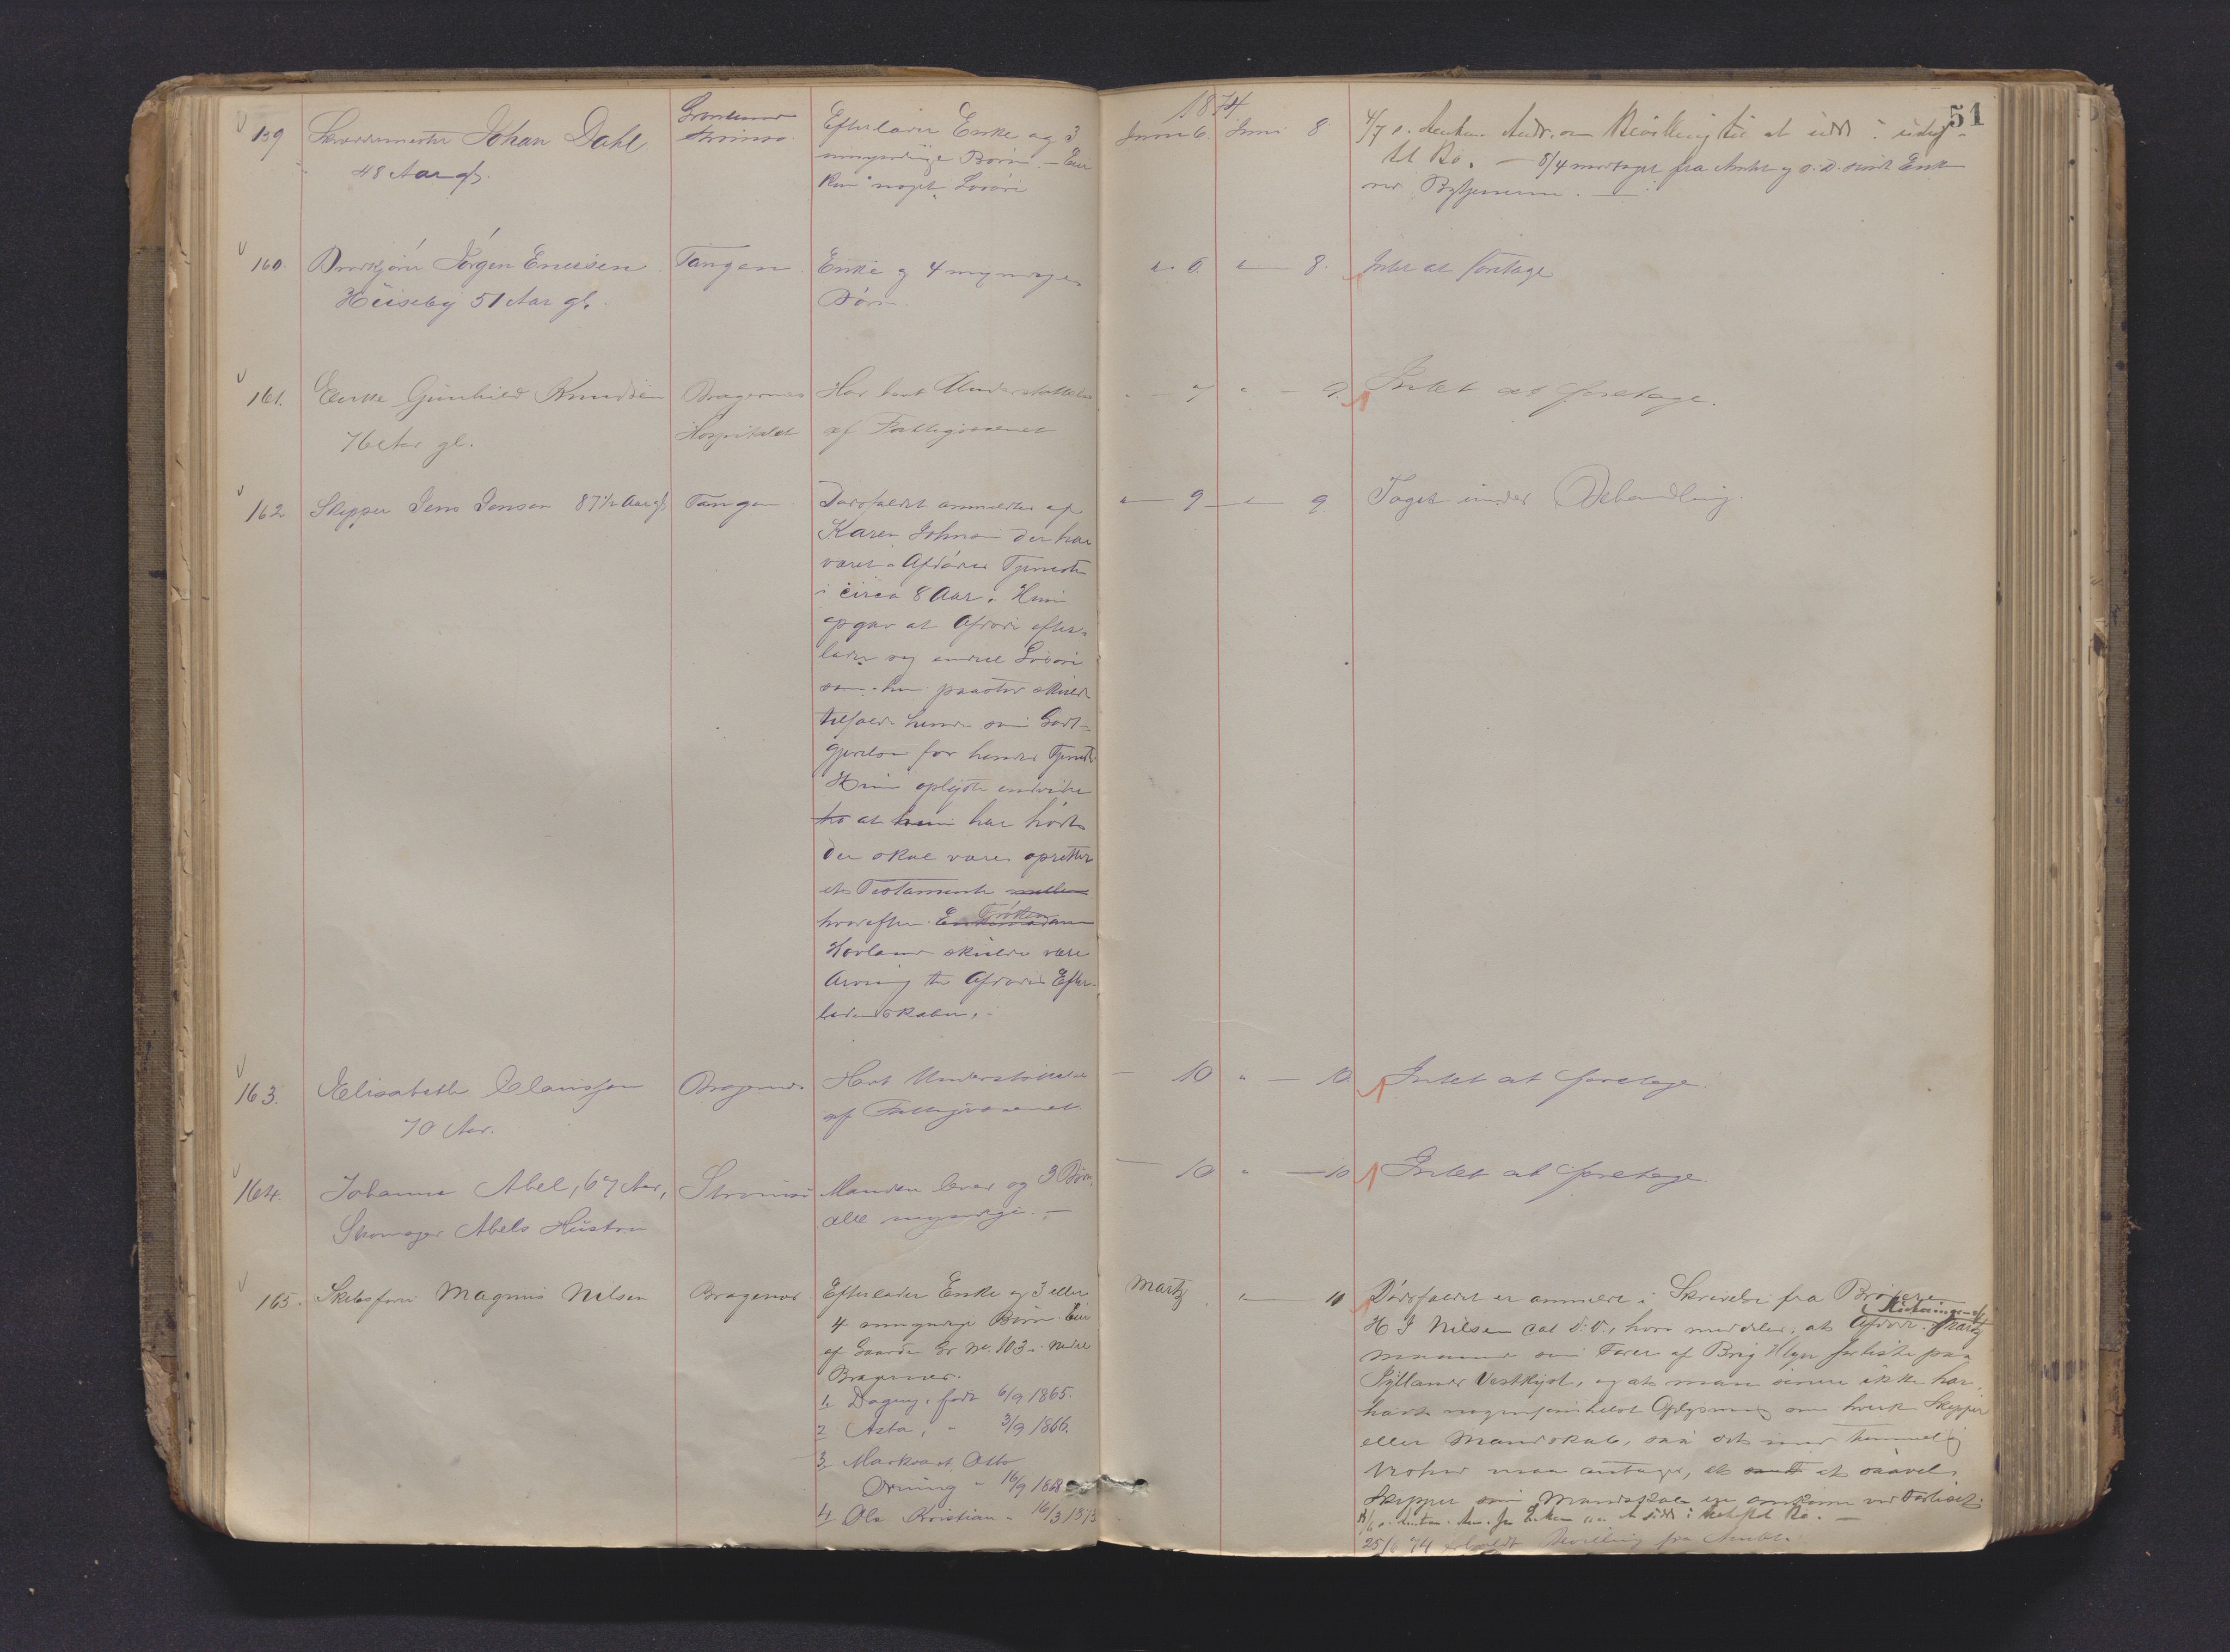 51
1874
159 Johan Dahl
48 Aar gl.
Grønland
Strømsø
Efterlader Enke og 3
umyndige Børn. - Eier
kun noget Løsøre
Juni 6. Juni 8
4/7 s. Bevilling til at sidde i uskif-
tet Bo. - 8/4 modtaget fra Amtet og s. D. Enken
ved Bytjeneren. -
160. Jørgen Enersen
Huseby 51 Aar gl.
Tangen
Enke og 4 myndige
Børn.
" 6. " 8.
Intet at foretage
161. Enke Gunhild Knudsen
76 Aar gl.
Bragernes
Hospitalet
Har havt Understøttelse
af Fattigvæsenet
Intet at foretage.
162 Skipper Jens Jensen 87½ Aar gl.
Tangen
Dødsfaldet anmeldtes af
Karen Johnsen der har
været i Afdødes Tjeneste
i circa 8 Aar. Hun
opgav at Afdøde efter-
lader sig endeel Løsøre
som hun paastod skulde
tilfalde hende som Godt-
gjørelse for hendes Tjeneste
Hun oplyste endvidere
at hun har hørt
der skal være oprettet
et Testamente mellem
hvorefter Enkemadam Frøken
Hovland skulde være
Arving til Afdødes Efter-
ladenskaber. -
" 9 " 9.
Taget under Behandling.
163. Elisabeth Clausson
70 Aar.
Bragernes
Havt Understøttelse
af Fattigvæsenet
- 10 " - 10
Intet at foretage.
164. Johanne Abel, 67 Aar,
Skomager Abels Hustru
Strømsø
Manden lever og 3 Børn,
alle myndige. -
- 10 " - 10
Intet at foretage.
165. Skibsfører Magnus Nilsen
Bragernes
Efterlader Enke og 3 eller
4 umyndige Børn. Eier
af Gaarden Gr No. 103 i nedre
Bragernes.
1. Dagny, født 6/9 1865.
2 Asta, " 3/9 1866.
3. Markvart Otto
Orning " 16/9 1868
4 Ole Kristian " 16/3 1873
Martz
" 10
Dødsfaldet er anmeldt i Skrivelse fra Broderen
H J Nilsen dat d. D., hvori meddeles, at Afdøde i Slutningen af Martz
maaned som Fører af Brig forliste paa
Jyllands Vestkyst, og at man senere ikke har
havt nogensomhelst Oplysning om hverken Skipper
eller Mandskab, saa det med temmelig
Vished maa antages, at saavel
Skipper som Mandskab er omkomne ved Forliset.
at sidde i uskiftet Bo. -
25/6 74 erholdt Bevilling fra Amtet.